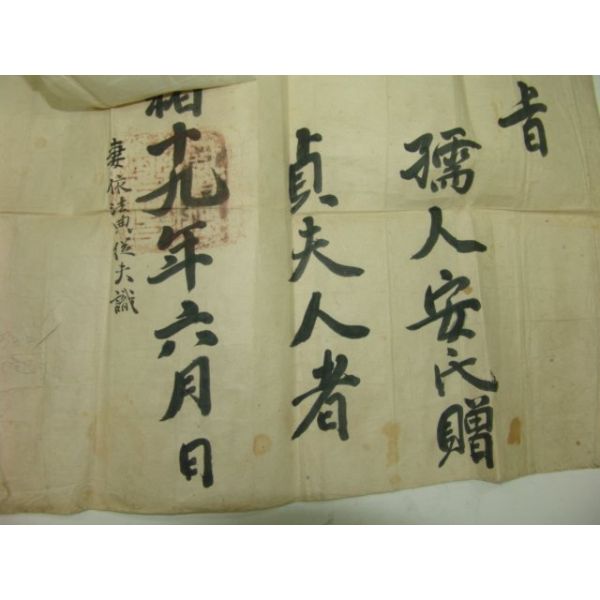 旨
孺人安氏贈
貞夫人者
緒十九年六月日
妻依法典從夫識